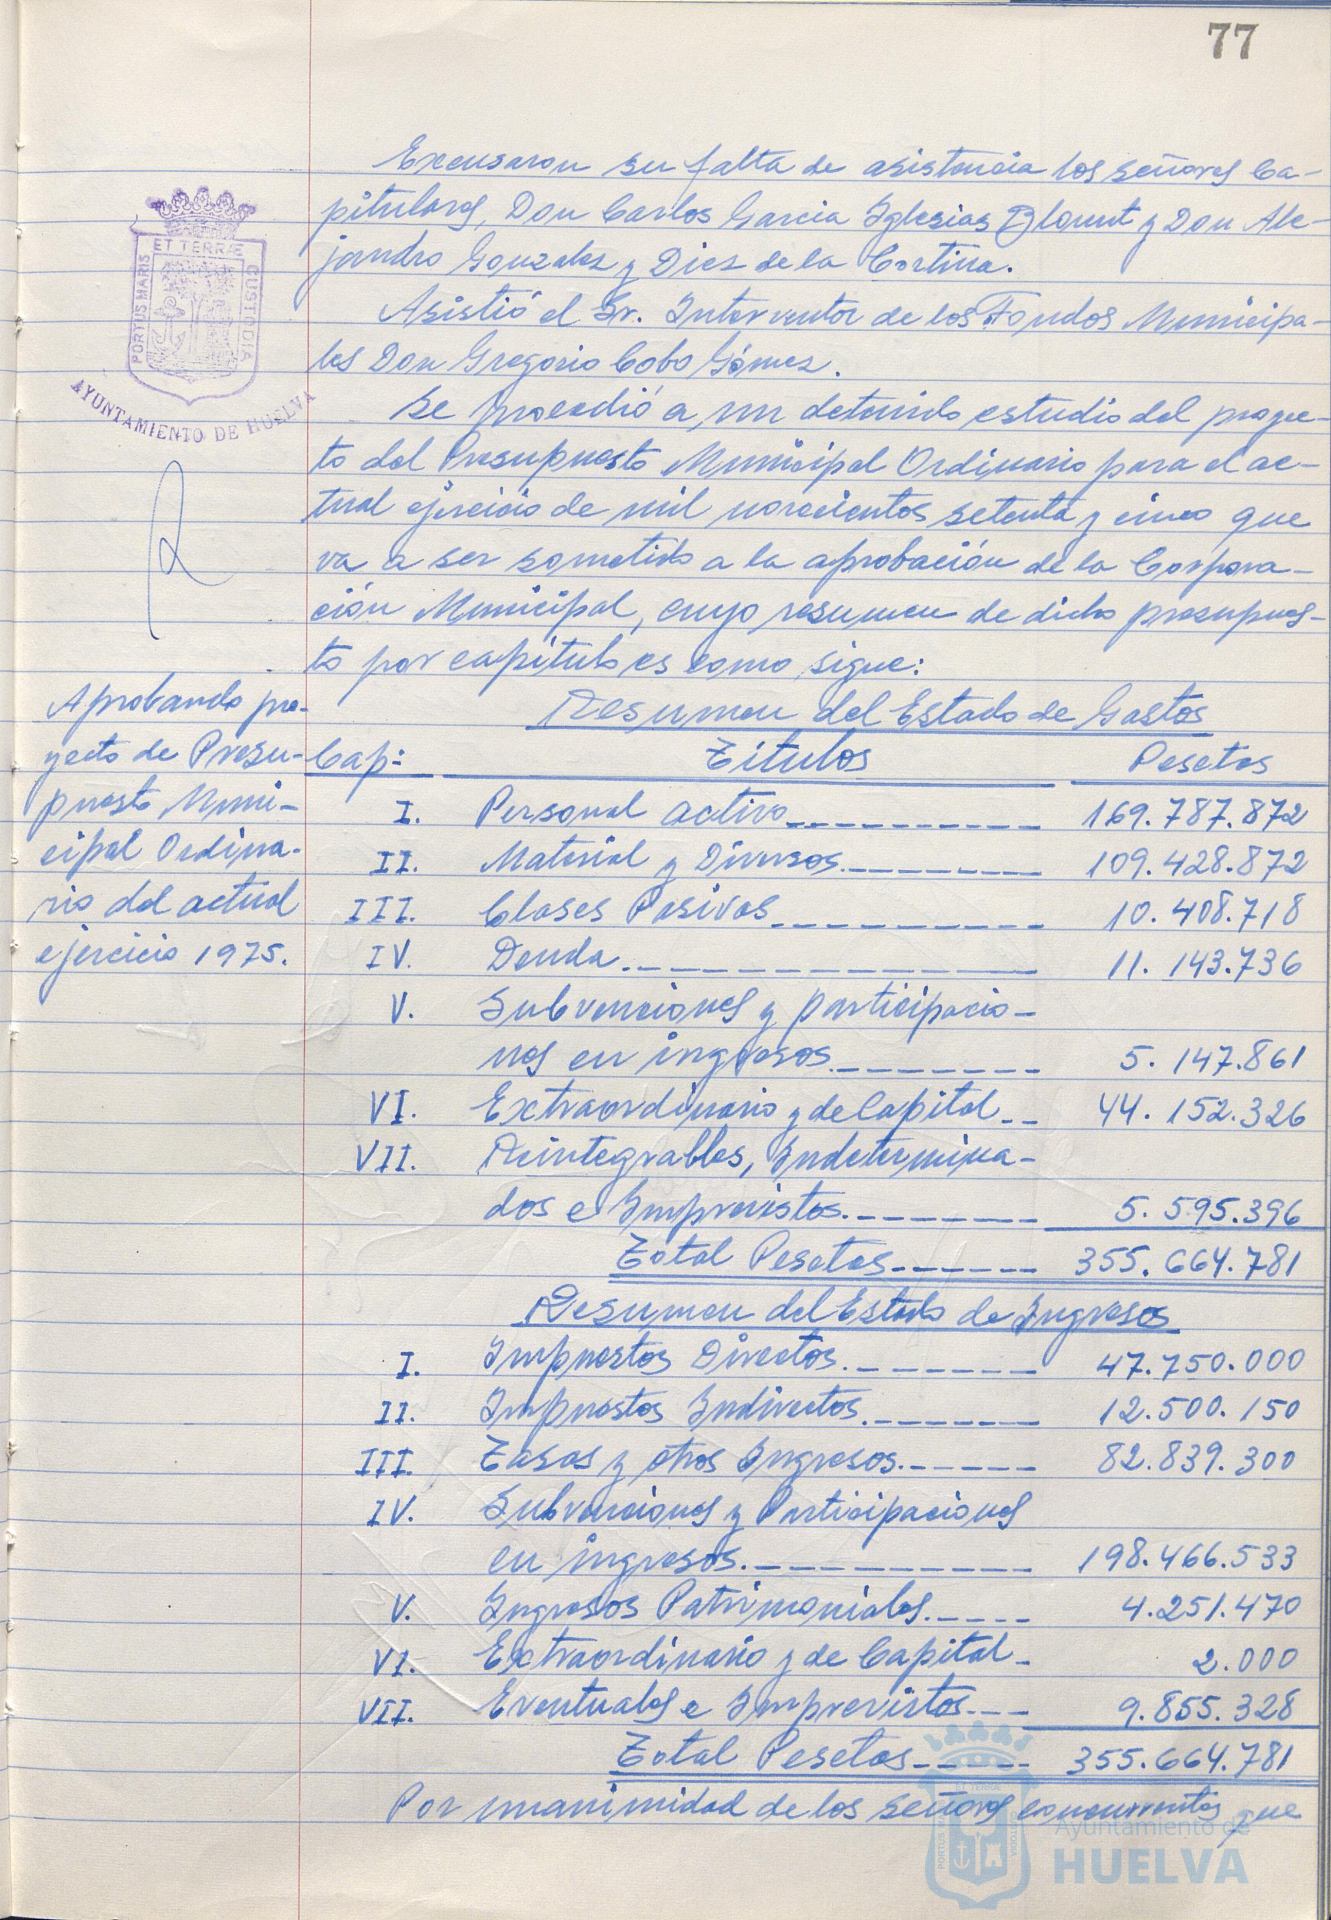 77
Excusaron su falta de asistencia los señores Ca-
pitulares, Don Carlos Garcia Yglesias Blount y Don Ale-
jandro Gonzalez y Diez de la Cortina.
Asistió el Sr. Interventor de los Fondos Municipa-
les Don Gregorio Cobo Gómez.
Se procedió a un detenido estudio del proyec-
to del Presupuesto Municipal Ordinario para el ac-
tual ejercicio de mil novecientos setenta y cinco que
va a ser sometido a la aprobación de la Corpora-
ción Municipal, cuyo resumen de dicho presupues-
to por capitulo es como sigue:
PORTUS MARIS ET TERRÆ CUSTODIA
AYUNTAMIENTO DE HUELVA
Aprobando pro-
yecto de Presu-
puesto Muni-
cipal Ordina-
rio del actual
ejercicio 1975.
Resumen del Estado de Gastos
Cap: Titulos Pesetas
I. Personal activo 169.787.872
II. Material y Diversos 109.428.872
III. Clases Pasivas 10.408.718
IV. Deuda 11.143.736
V. Subvenciones y participacio-
nes en ingresos 5.147.861
VI. Extraordinario y de Capital 44.152.326
VII. Reintegrables, Indetermina-
dos e Imprevistos 5.595.396
Total Pesetas 355.664.781
Resumen del Estado de Ingresos
I. Impuestos Directos 47.750.000
II. Impuestos Indirectos 12.500.150
III. Tasas y otros Ingresos 82.839.300
IV. Subvenciones y Participaciones
en ingresos 198.466.533
V. Ingresos Patrimoniales 4.251.470
VI. Extraordinario y de Capital 2.000
VII. Eventuales e Imprevistos 9.855.328
Total Pesetas 355.664.781
Por unanimidad de los señores concurrentes que
Ayuntamiento de
HUELVA